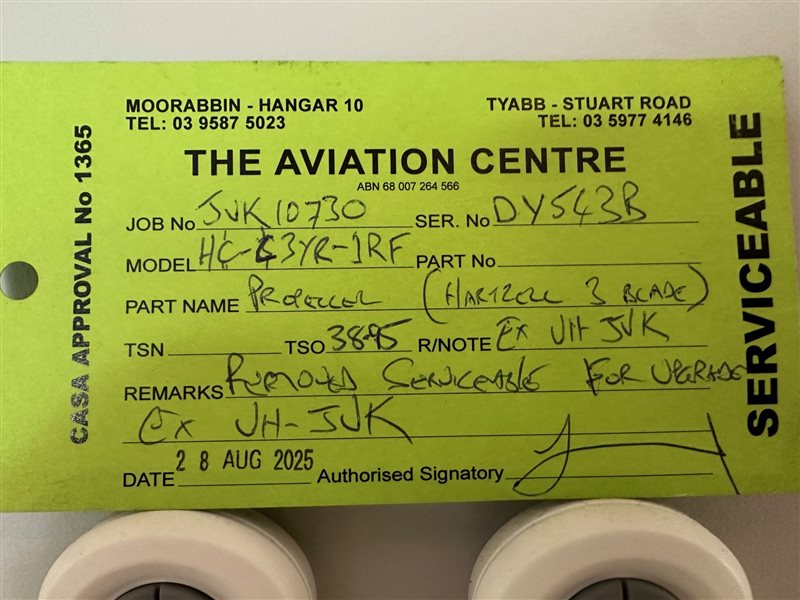 MOORABBIN - HANGAR 10
TEL: 03 9587 5023
TYABB - STUART ROAD
TEL: 03 5977 4146
THE AVIATION CENTRE
ABN 68 007 264 566
JOB No JVK10730 SER. No DY543B
MODEL HC-C3YR-1RF PART No
PART NAME PROPELLER (HARTZELL 3 BLADE)
TSN TSO 3895 R/NOTE EX VH JVK
REMARKS REMOVED SERVICEABLE FOR UPGRADE
EX VH-JVK
DATE 28 AUG 2025 Authorised Signatory
CASA APPROVAL No 1365
SERVICEABLE